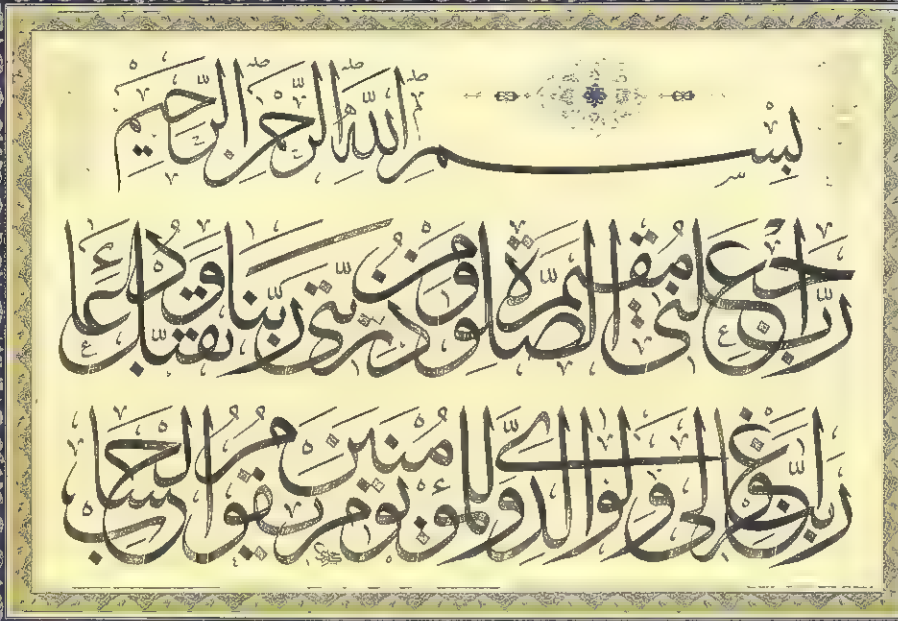 بِسْمِ اللَّهِ الرَّحْمٰنِ الرَّحِيمِ
رَبِّ اجْعَلْنِي مُقِيمَ الصَّلَاةِ وَمِنْ ذُرِّيَّتِي رَبَّنَا وَتَقَبَّلْ دُعَاءِ
رَبَّنَا اغْفِرْ لِي وَلِوَالِدَيَّ وَلِلْمُؤْمِنِينَ يَوْمَ يَقُومُ الْحِسَابُ